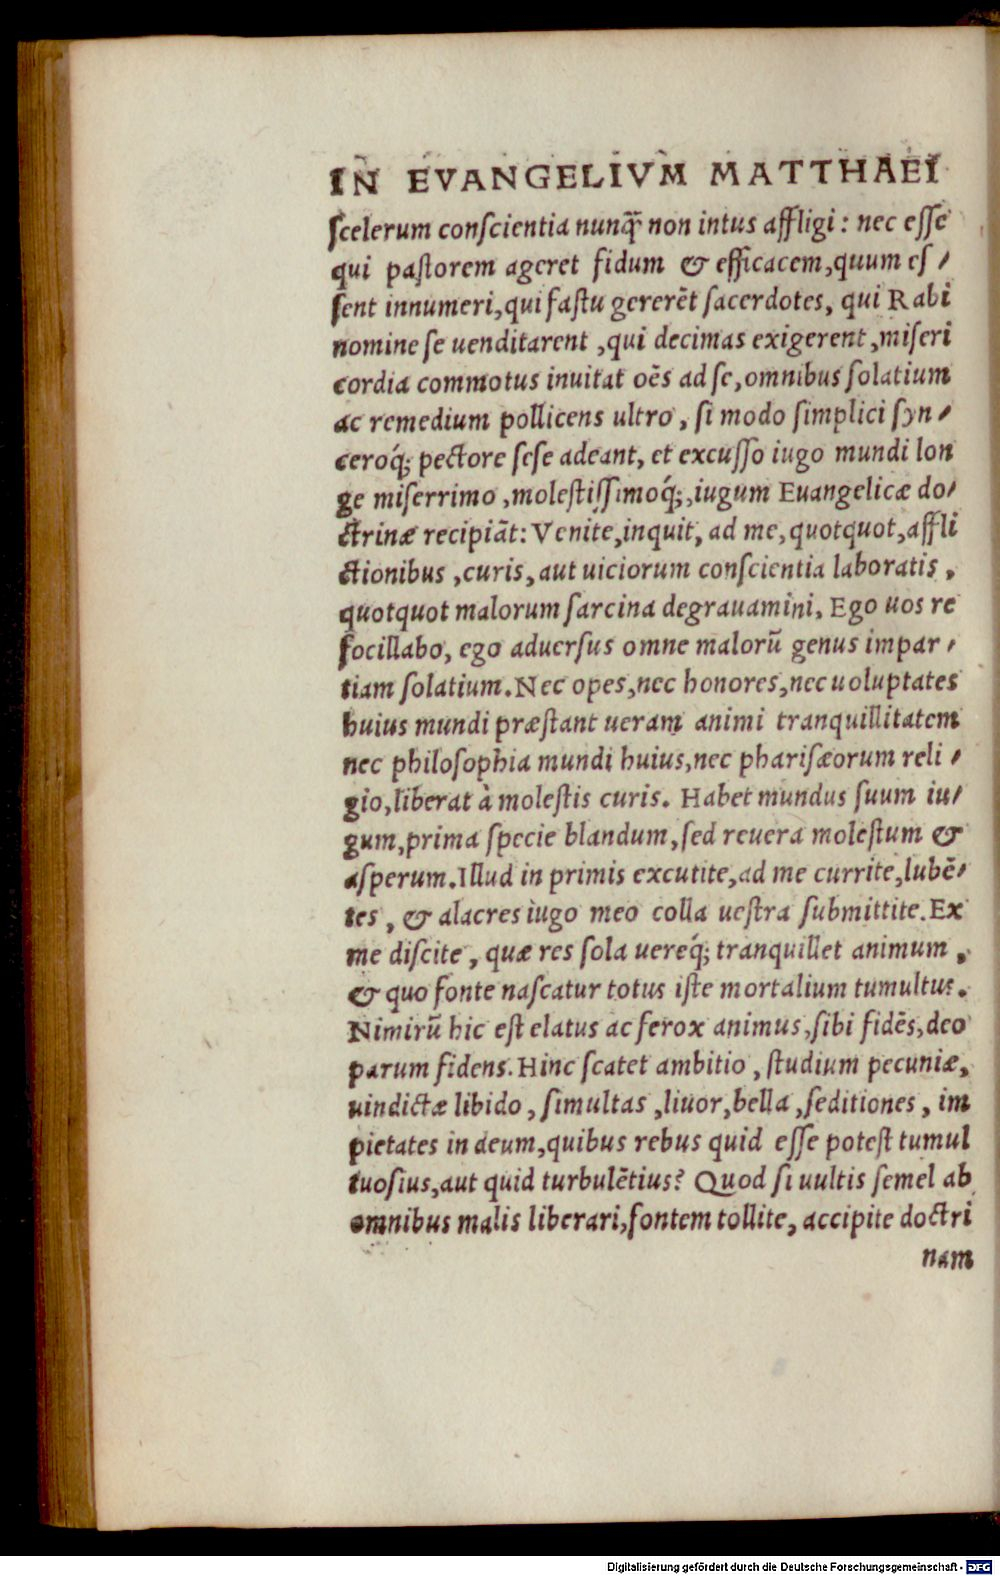 IN EVANGELIVM MATTHAEI
scelerum conscientia nunq̃ non intus affligi: nec esse
qui pastorem ageret fidum & efficacem, quum es/
sent innumeri, qui fastu gererēt sacerdotes, qui Rabi
nomine se uenditarent, qui decimas exigerent, miseri
cordia commotus inuitat oēs ad se, omnibus solatium
ac remedium pollicens ultro, si modo simplici syn/
ceroq́; pectore sese adeant, et excusso iugo mundi lon
ge miserrimo, molestissimoq́;, iugum Euangelicæ do/
ctrinæ recipiāt: Venite, inquit, ad me, quotquot, affli
ctionibus, curis, aut uiciorum conscientia laboratis,
quotquot malorum sarcina degrauamini, Ego uos re
focillabo, ego aduersus omne malorū genus impar/
tiam solatium. Nec opes, nec honores, nec uoluptates
huius mundi præstant ueram animi tranquillitatem
nec philosophia mundi huius, nec pharisæorum reli/
gio, liberat à molestis curis. Habet mundus suum iu/
gum, prima specie blandum, sed reuera molestum &
asperum. Illud in primis excutite, ad me currite, lubē/
tes, & alacres iugo meo colla uestra submittite. Ex
me discite, quæ res sola uereq́; tranquillet animum,
& quo fonte nascatur totus iste mortalium tumultus.
Nimirū hic est elatus ac ferox animus, sibi fidēs, deo
parum fidens. Hinc scatet ambitio, studium pecuniæ,
uindictæ libido, simultas, liuor, bella, seditiones, im
pietates in deum, quibus rebus quid esse potest tumul
tuosius, aut quid turbulētius? Quod si uultis semel ab
omnibus malis liberari, fontem tollite, accipite doctri
nam
Digitalisierung gefördert durch die Deutsche Forschungsgemeinschaft - DFG